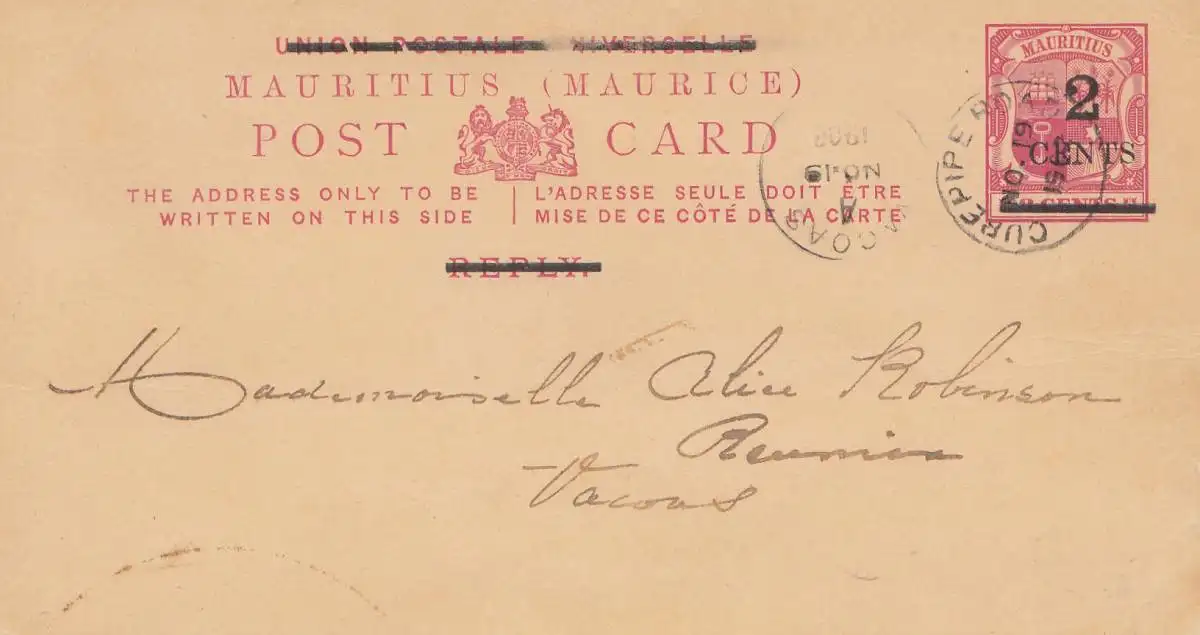 UNION POSTALE UNIVERSELLE
MAURITIUS (MAURICE)
POST CARD
THE ADDRESS ONLY TO BE
WRITTEN ON THIS SIDE
L'ADRESSE SEULE DOIT ÊTRE
MISE DE CE CÔTÉ DE LA CARTE
REPLY.
MAURITIUS
2
CENTS
CUREPIPE
NO 19
VACOAS
NO 19
Mademoiselle Alice Robinson
Reunion
Vacoas